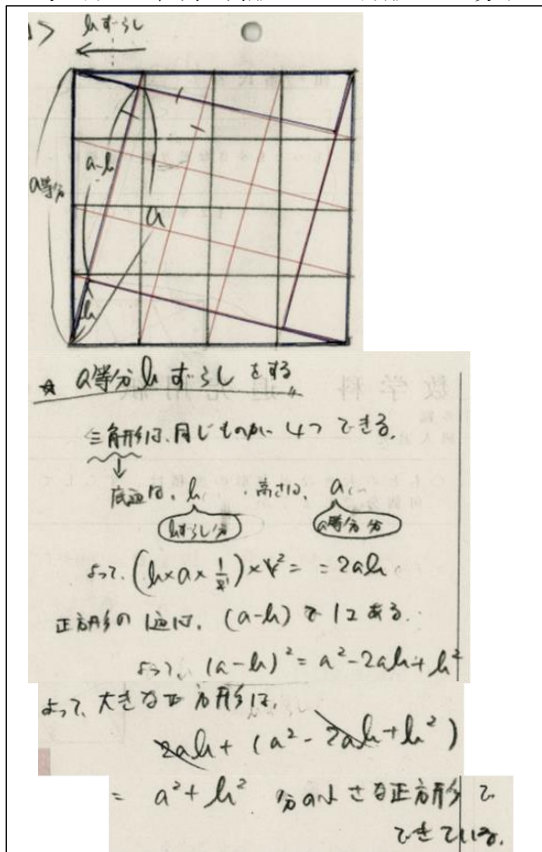 hずらし
a等分
a-h
a
h
☆ a等分hずらしをする
三角形は、同じものが4つできる。
底辺は、h 、高さは、a
hずらし分 a等分分
よって、(h×a×1/2)×4² = = 2ah
正方形の1辺は、(a-h)である。
よって、(a-h)² = a²-2ah+h²
よって、大きな正方形は、
2ah+(a²-2ah+h²)
= a²+h² 分の小さな正方形で
できている。